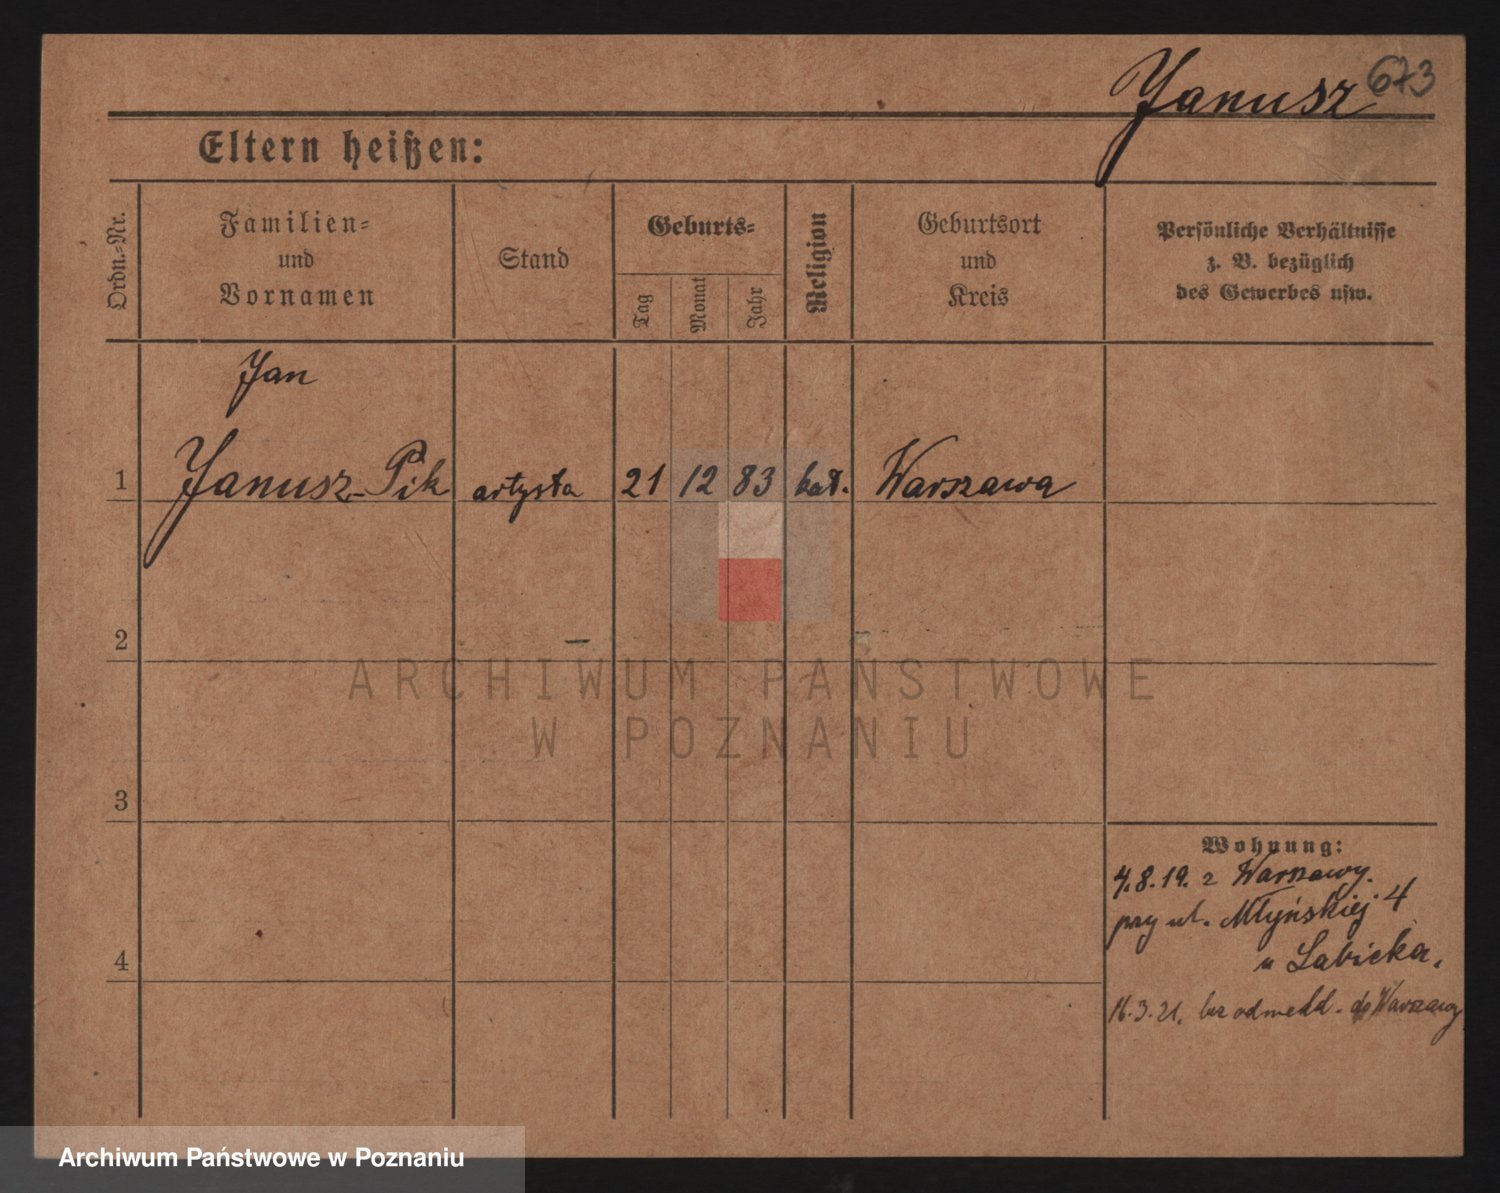 Janusz 673
Eltern heißen:
Ordn.-Nr.
Familien-
und
Vornamen
Stand
Geburts-
Tag
Monat
Jahr
Religion
Geburtsort
und
Kreis
Persönliche Verhältnisse
z. B. bezüglich
des Gewerbes usw.
Jan
1 Janusz-Pik artysta 21 12 83 kat. Warszawa
2
ARCHIWUM PAŃSTWOWE
W POZNANIU
3
Wohnung:
4.8.19. z Warszawy.
przy ul. Młyńskiej 4
u Labicka.
4
16.3.21. bez odmeld. do Warszawy
Archiwum Państwowe w Poznaniu